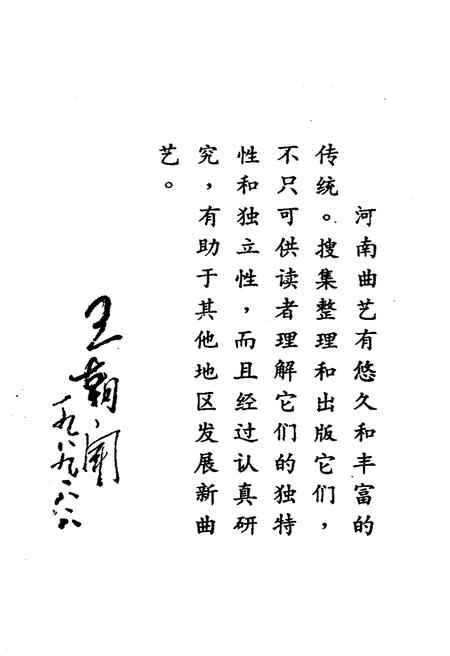 河南曲艺有悠久和丰富的
传统。搜集整理和出版它们，
不只可供读者理解它们的独特
性和独立性，而且经过认真研
究，有助于其他地区发展新曲
艺。
王朝闻